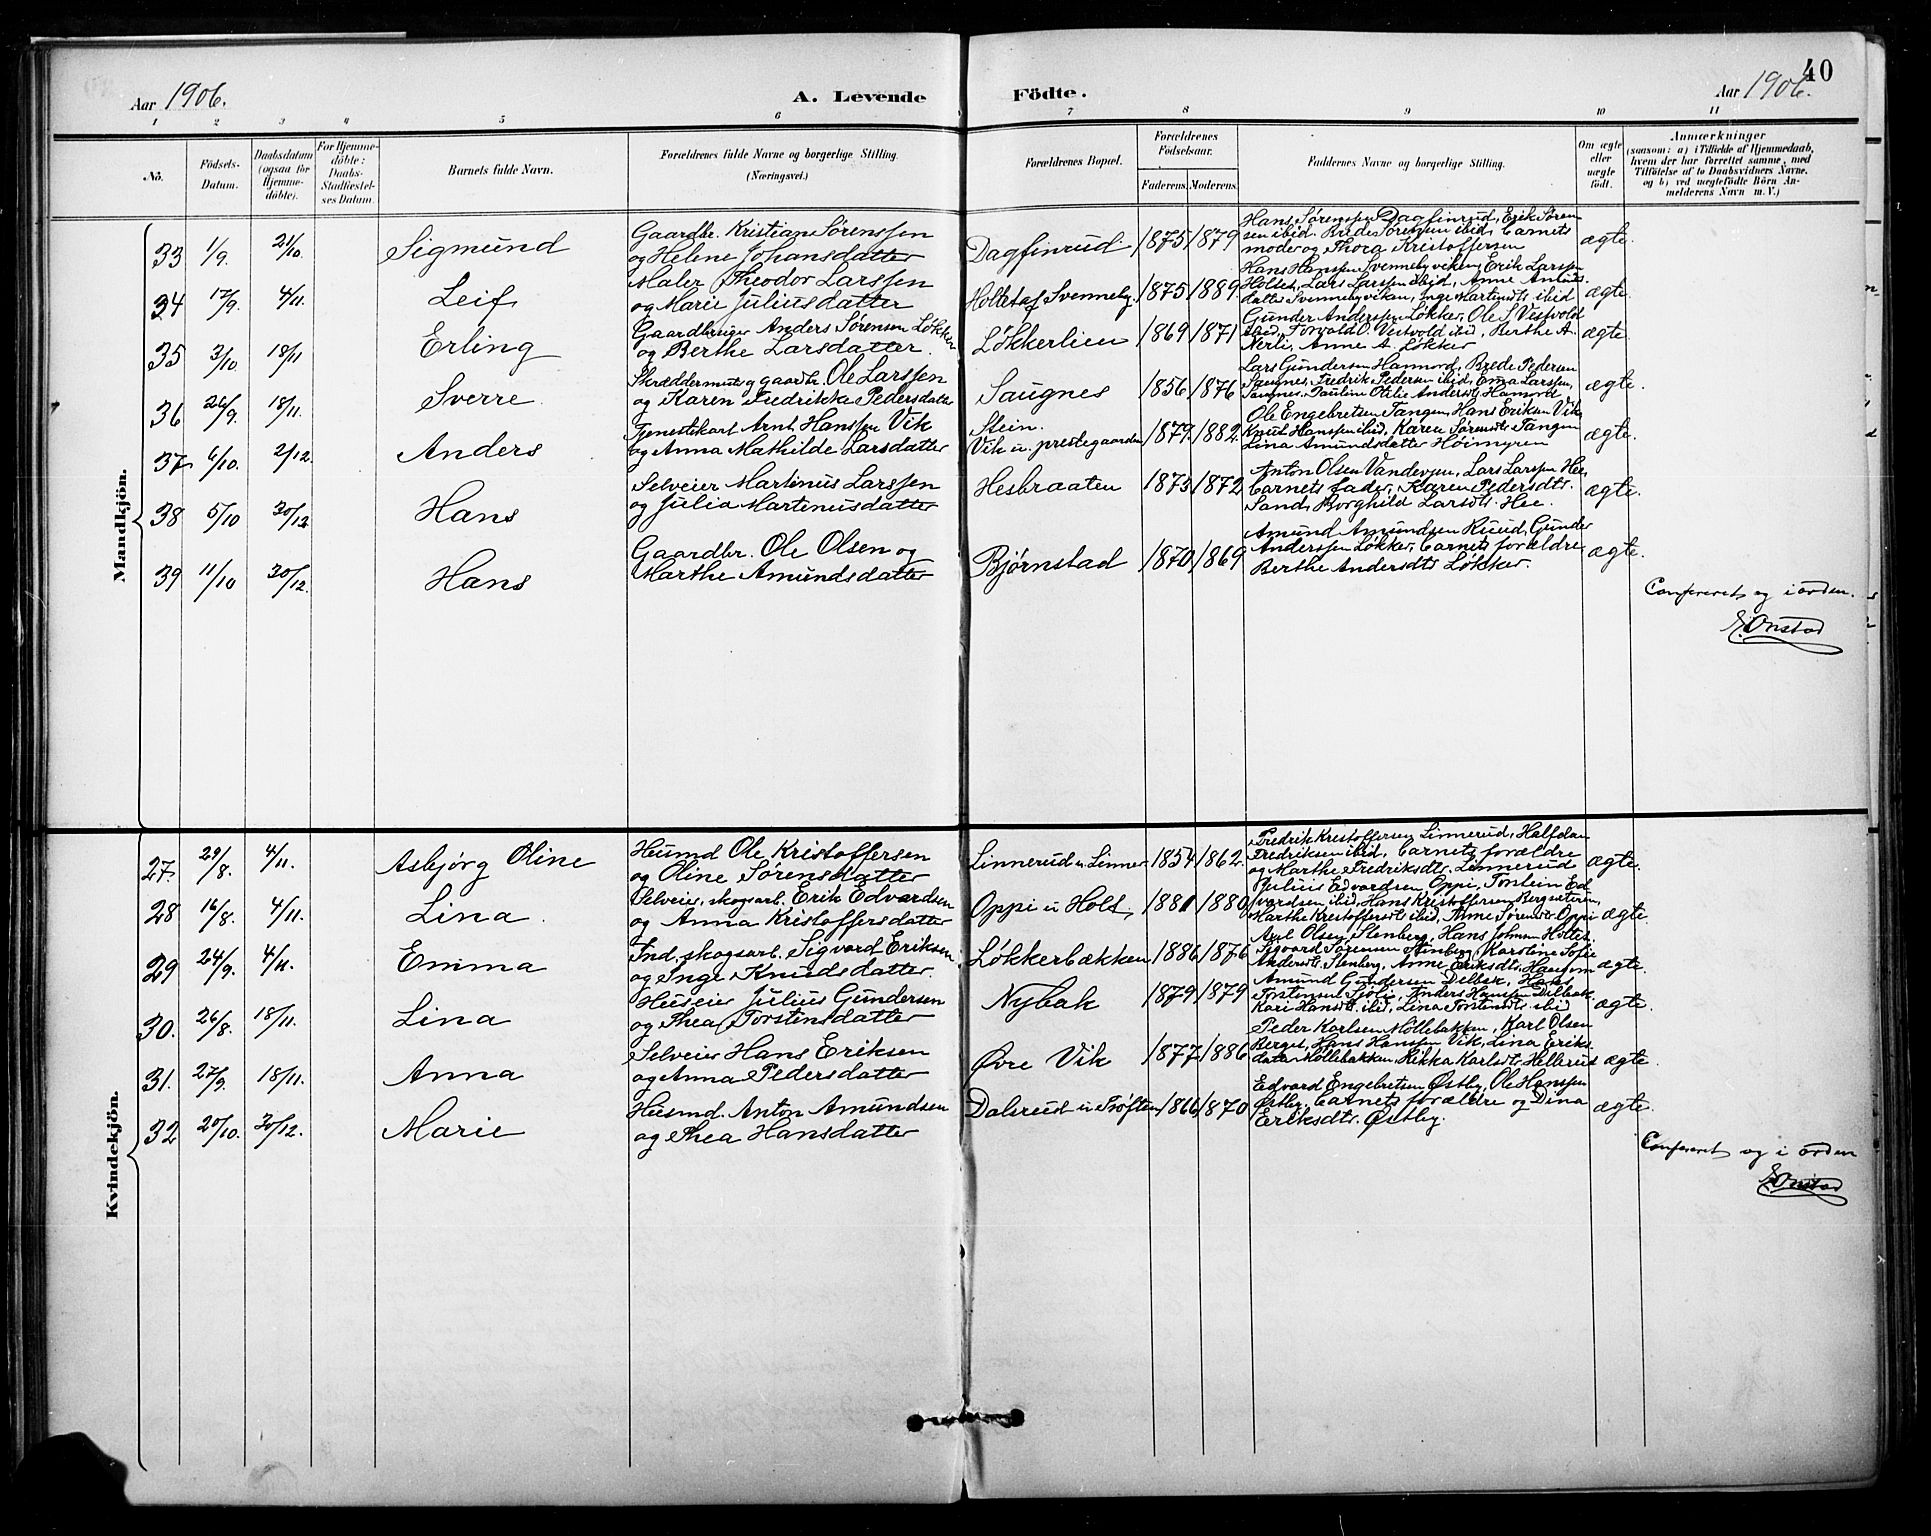 40
Aar 1906.
A. Levende Födte.
Aar 1906.
1 2 3 4 5 6 7 8 9 10 11
No.
Födsels-Datum.
Daabsdatum (ogsaa for Hjemme-döbte).
For Hjemme-döbte: Daabs-Stadfæstel-ses Datum.
Barnets fulde Navn.
Forældrenes fulde Navne og borgerlige Stilling. (Næringsvei.)
Forældrenes Bopæl.
Forældrenes Födselsaar.
Faderens. Moderens.
Faddernes Navne og borgerlige Stilling.
Om ægte eller uægte födt.
Anmærkninger
(saasom: a) i Tilfælde af Hjemmedaab,
hvem der har forrettet samme, med
Tilföielse af to Daabsvidners Navne.
og b) ved uægtefödte Börn An-
melderens Navn m. V.)
Mandkjön.
33 1/9. 21/10. Sigmund
Gaardbr. Kristian Sørenssen
og Helene Johansdatter
Dagfinrud 1875 1879
Hans Sørenssen Dagfinrud, Erik Søren-
sen ibid. Brede Sørenssen ibid, barnets
moder og Thora Kristoffersen
ægte.
34 17/9. 4/11. Leif
Maler Theodor Larssen
og Marie Juliusdatter
Holtet af Svenneby. 1875 1889
Hans Hanssen Svennebyviken, Erik Larssen
Holtet, Lars Larssen ibid, Anne Antons
datter Svennebyvikan, Inge Martinsdt. ibid
ægte.
35 3/10 18/11 Erling
Gaardbruger Anders Sørensen Løkker
og Berthe Larsdatter.
Løkkerlien 1869 1871
Gunder Anderssen Løkker, Ole S. Vestvold
ibid, Torvald O. Vestvold ibid, Berthe A.
Nerli, Anne A. Løkker
ægte.
36 26/9. 18/11. Sverre
Skræddermester og gaardbr. Ole Larssen
og Karen Fredrikke Pedersdatter
Saugnes 1856 1876
Lars Gundersen Hamord, Brede Pedersen
Saugnes, Fredrik Pedersen ibid, Ema Larssen,
Saugnes. Pauline Otilie Andersdt. Hamord
ægte.
37 6/10. 2/12. Anders
Tjenestekarl Arnt Hanssen Vik
og Anna Mathilde Larsdatter
Stein.
Vik u. prestegaarden 1879. 1882.
Ole Engebretsen Tangen, Hans Eriksen Vik,
Knut Hanssen ibid, Karen Sørensdt Tangen
Lina Amundsdatter Høimyren
ægte.
38 5/10 30/12 Hans
Selveier Martinus Larssen
og Julia Martinusdatter
Hesbraaten 1873 1872
Anton Olsen Vandevjen, Lars Larssen Hee,
barnets fader, Karen Pedersdts.
Sand, Borghild Larsdt. Hee.
ægte.
39 11/10 30/12. Hans
Gaardbr. Ole Olsen og
Marthe Amundsdatter
Bjørnstad 1870 1869
Amund Amundsen Ruud, Gunder
Anderssen Løkker, barnets forældre,
Berthe Andersdts Løkker.
ægte.
Confereret og i orden.
E. Onstad
Kvindekjön.
27. 29/8. 4/11. Asbjørg Oline
Husmd Ole Kristoffersen
og Oline Sørensdatter
Linnerud u. Linner 1854 1862.
Fredrik Kristoffersen Linnerud, Halfdan
Fredriksen ibid, barnets forældre
og Marthe Fredriksdts. Linnerud
ægte.
28 16/8. 4/11. Lina.
Selveier, skogsarb. Erik Edvardsen
og Anna Kristoffersdatter
Oppi u Holt, 1881 1880
Julius Edvardsen Oppi, Torstein Ed-
vardsen ibid, Hans Kristoffersen Bergsæteren,
Marthe Kristoffersdt ibid, Anne Sørensdt Oppi
ægte.
29 24/9. 4/11. Emma
Ind. skogsarb. Sigvard Eriksen
og Inge Knudsdatter.
Løkkerbækken 1886 1876
Axel Olsen Stenberg, Hans Johnsen Holtet,
Sigvard Sørensen Stenberg, Karstine Sofie
Andersdt. Stenberg, Anne Eriksdts.
ægte.
30. 26/8. 18/11. Lina
Huseier Julius Gundersen
og Thea Torstensdatter
Nybak 1879 1879
Amund Gundersen Delbæk, Hans
Torstensen Sjölie, Anders Hanssen Delbæk
Kari Hansdt ibid, Lina Torstensdts. ibid
ægte.
31. 27/9. 18/11. Anna
Selveier Hans Eriksen
og Anna Pedersdatter
Øvre Vik 1877 1886
Peder Karlsen Møllebakken, Karl Olsen
Berget, Hans Hanssen Vik, Lina Eriks-
datter Møllebakken, Rikka Karlsdt. Hellerud
ægte.
32 20/10. 30/12. Marie
Husmd. Anton Amundsen
og Thea Hansdatter
Dalsrud u. Tröften 1866 1870
Edvard Engebretsen Østby, Ole Hanssen
Østby, barnets forældre og Dina
Eriksdts. Østby.
ægte.
Confereret og i orden
E. Onstad